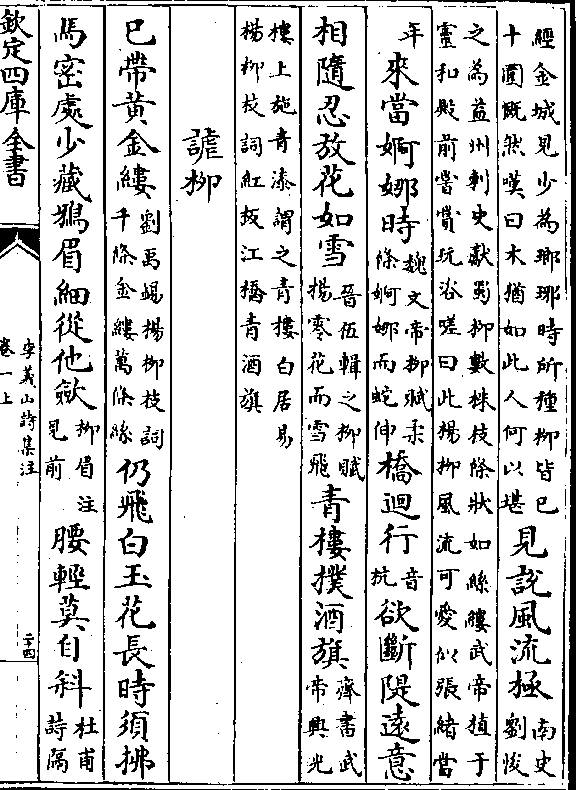 經金城見少為瑯琊時所種柳皆已十圍慨然嘆曰木猶如此人何以堪見說風流極南史劉悛
之為益州刺史獻蜀柳數株枝條狀如絲縷武帝植于靈和殿前嘗賞玩咨嗟曰此楊柳風流可愛似張緒當
年來當婀娜時魏文帝柳賦柔條婀娜而蛇伸橋迴行音杭欲斷隄遠意
相隨忍放花如雪晉伍輯之柳賦楊零花而雪飛青樓撲酒旗齊書武帝興光
樓上施青漆謂之青樓白居易楊柳枝詞紅板江橋青酒旗
謔柳
已帶黃金縷劉禹錫楊柳枝詞千條金縷萬條絲仍飛白玉花長時須拂
馬密處少藏鴉眉細從他斂柳眉注見前腰輕莫自斜杜甫詩隔
欽定四庫全書
李義山詩集注
卷一上
二十四